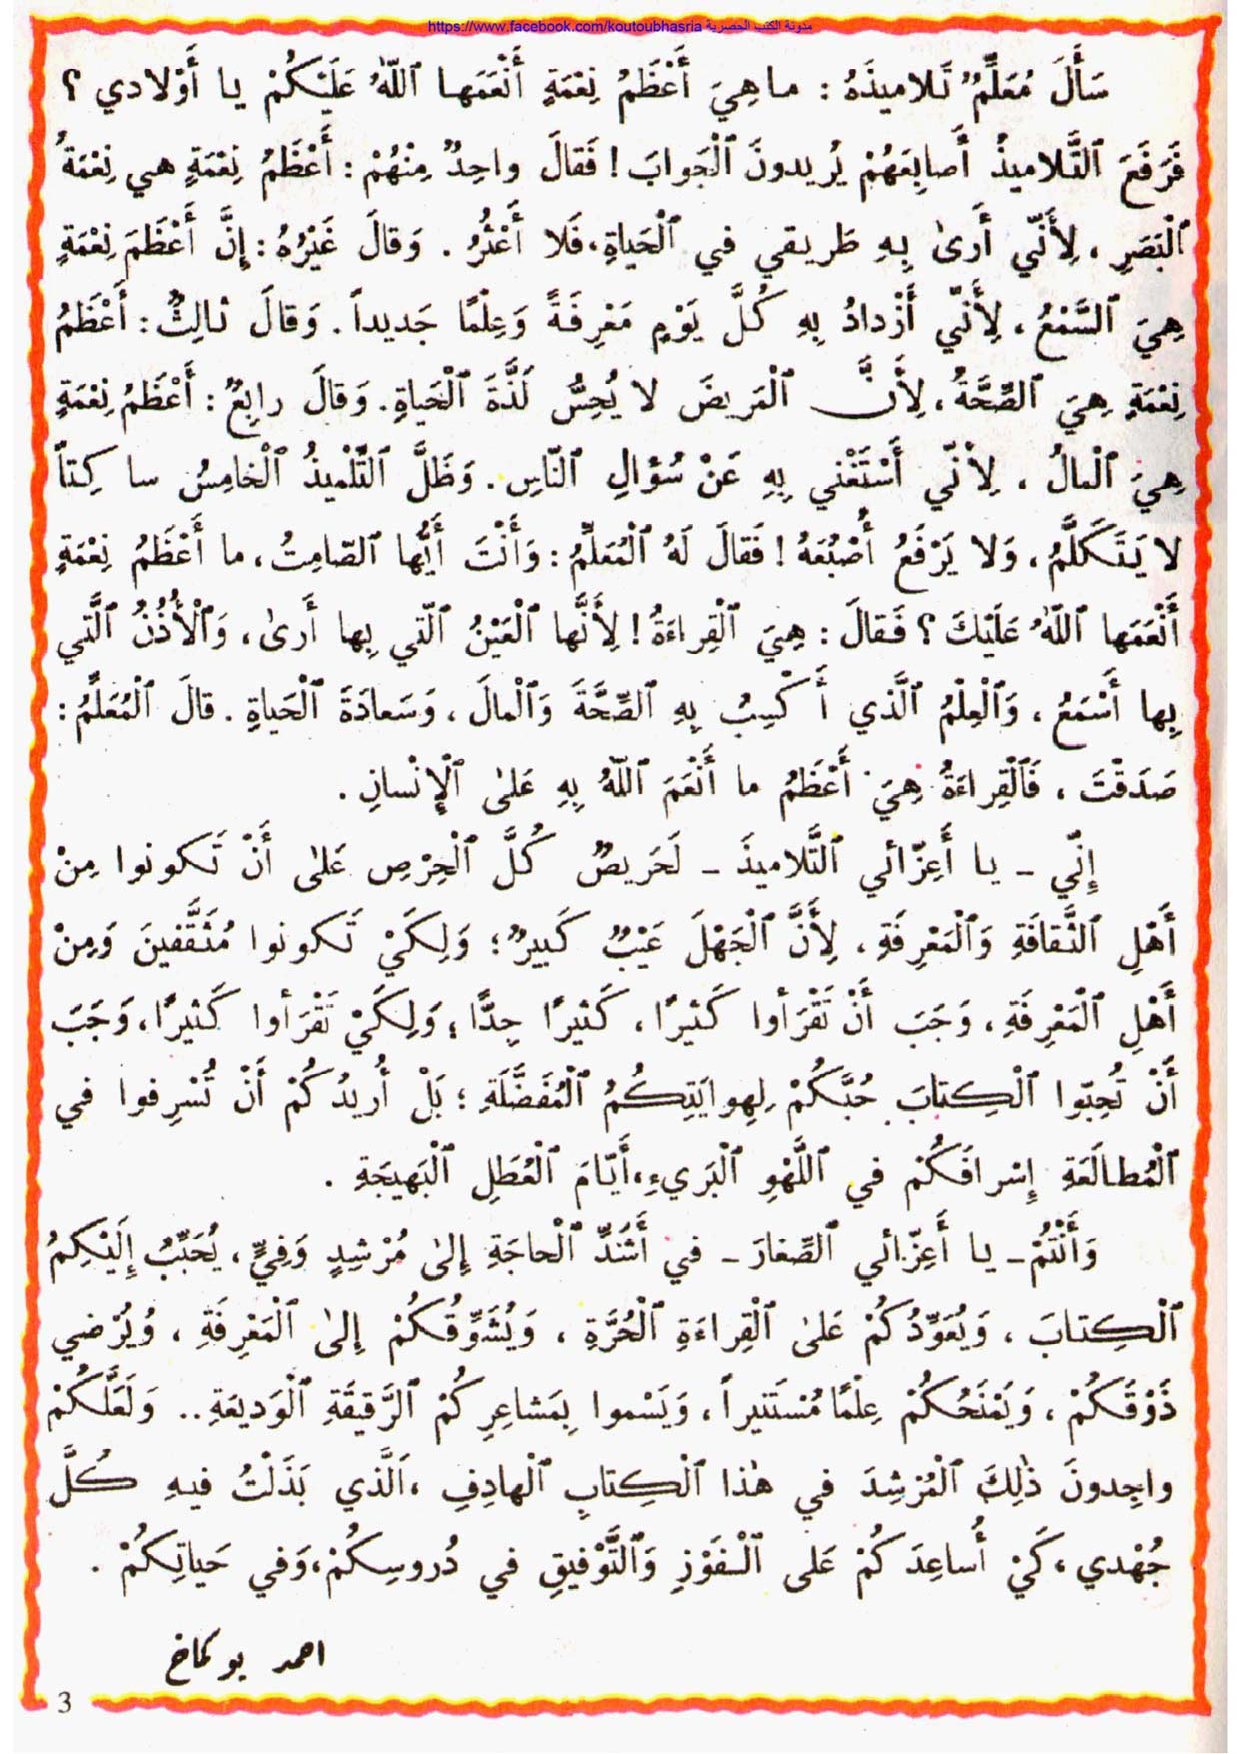 https://www.facebook.com/koutoubhasria مدونة الكتب الحصرية
سَأَلَ مُعَلِّمٌ تَلاميذَهُ : ماهِيَ أَعْظَمُ نِعْمَةٍ أَنْعَمَها ٱللّٰهُ عَلَيْكُمْ يا أَوْلادي ؟
فَرَفَعَ ٱلتَّلاميذُ أَصابِعَهُمْ يُريدونَ ٱلْجَوابَ ! فَقالَ واحِدٌ مِنْهُمْ : أَعْظَمُ نِعْمَةٍ هي نِعْمَةُ
ٱلْبَصَرِ ، لِأَنّي أَرىٰ بِهِ طَريقي في ٱلْحَياةِ،فَلا أَعْثُرُ . وَقالَ غَيْرُهُ : إِنَّ أَعْظَمَ نِعْمَةٍ
هِيَ ٱلسَّمْعُ ، لِأَنّي أَزْدادُ بِهِ كُلَّ يَوْمٍ مَعْرِفَةً وَعِلْمًا جَديداً . وَقالَ ثالِثٌ : أَعْظَمُ
نِعْمَةٍ هِيَ ٱلصِّحَّةُ ، لِأَنَّ ٱلْمَريضَ لا يُحِسُّ لَذَّةَ ٱلْحَياةِ. وَقالَ رابِعٌ : أَعْظَمُ نِعْمَةٍ
هِيَ ٱلْمالُ ، لِأَنّي أَسْتَغْني بِهِ عَنْ سُؤالِ ٱلنّاسِ . وَظَلَّ ٱلتِّلْميذُ ٱلْخامِسُ سا كِتاً
لا يَتَكَلَّمُ ، وَلا يَرْفَعُ أُصْبُعَهُ ! فَقالَ لَهُ ٱلْمُعَلِّمُ : وَأَنْتَ أَيُّها ٱلصّامِتُ ، ما أَعْظَمُ نِعْمَةٍ
أَنْعَمَها ٱللّٰهُ عَلَيْكَ ؟ فَقالَ : هِيَ ٱلْقِراءَةُ ! لِأَنَّها ٱلْعَيْنُ ٱلَّتي بِها أَرىٰ ، وَٱلْأُذُنُ ٱلَّتي
بِها أَسْمَعُ ، وَٱلْعِلْمُ ٱلَّذي أَكْسِبُ بِهِ ٱلصِّحَّةَ وَٱلْمالَ ، وَسَعادَةَ ٱلْحَياةِ . قالَ ٱلْمُعَلِّمُ :
صَدَقْتَ ، فَٱلْقِراءَةُ هِيَ أَعْظَمُ ما أَنْعَمَ ٱللّٰهُ بِهِ عَلىٰ ٱلْإِنْسانِ .
إِنّي ـ يا أَعِزّائي ٱلتَّلاميذَ ـ لَحَريصٌ كُلَّ ٱلْحِرْصِ عَلىٰ أَنْ تَكونوا مِنْ
أَهْلِ ٱلثَّقافَةِ وَٱلْمَعْرِفَةِ ، لِأَنَّ ٱلْجَهْلَ عَيْبٌ كَبيرٌ ؛ وَلِكَيْ تَكونوا مُثَقَّفينَ وَمِنْ
أَهْلِ ٱلْمَعْرِفَةِ ، وَجَبَ أَنْ تَقْرَأوا كَثيرًا ، كَثيرًا جِدًّا ؛ وَلِكَيْ تَقْرَأوا كَثيرًا ، وَجَبَ
أَنْ تُحِبّوا ٱلْكِتابَ حُبَّكُمْ لِهِوايَتِكُمُ ٱلْمُفَضَّلَةِ ؛ بَلْ أُريدُكُمْ أَنْ تُسْرِفوا في
ٱلْمُطالَعَةِ إِسْرافَكُمْ في ٱللَّهْوِ ٱلْبَريءِ،أَيّامَ ٱلْعُطَلِ ٱلْبَهيجَةِ .
وَأَنْتُمْ ـ يا أَعِزّائي ٱلصِّغارَ ـ في أَشَدِّ ٱلْحاجَةِ إِلىٰ مُرْشِدٍ وَفِيٍّ ، يُحَبِّبُ إِلَيْكُمُ
ٱلْكِتابَ ، وَيُعَوِّدُكُمْ عَلىٰ ٱلْقِراءَةِ ٱلْحُرَّةِ ، وَيُشَوِّقُكُمْ إِلىٰ ٱلْمَعْرِفَةِ ، وَيُرْضي
ذَوْقَكُمْ ، وَيَمْنَحُكُمْ عِلْمًا مُسْتَنيراً ، وَيَسْموا بِمَشاعِرِكُمْ ٱلرَّقيقَةِ ٱلْوَديعَةِ .. وَلَعَلَّكُمْ
واجِدونَ ذٰلِكَ ٱلْمُرْشِدَ في هٰذا ٱلْكِتابِ ٱلْهادِفِ ،ٱلَّذي بَذَلْتُ فيهِ كُلَّ
جُهْدي ، كَيْ أُساعِدَكُمْ عَلى ٱلْفَوْزِ وَٱلتَّوْفيقِ في دُروسِكُمْ،وَفي حَياتِكُمْ .
احمد بوكماخ
3